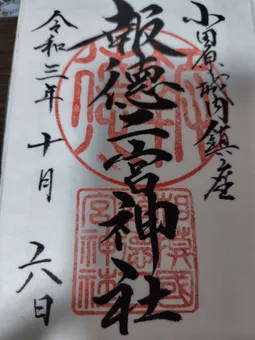 小田原城内鎮座
報徳二宮神社
令和三年十月六日
相模國
報徳二
宮神社